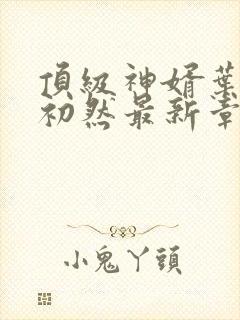 頂級神婿葉
初然最新章
小鬼丫頭